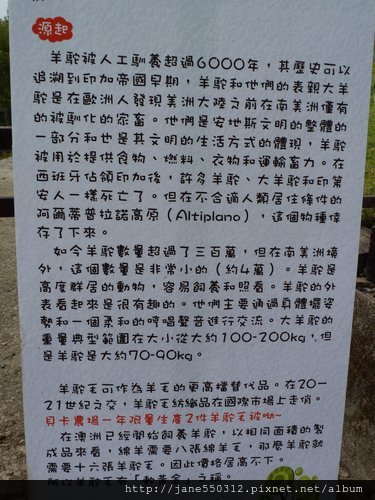 源起
羊駝被人工馴養超過6000年，其歷史可以
追溯到印加帝國早期，羊駝和他們的表親大羊
駝是在歐洲人發現美洲大陸之前在南美洲僅有
的被馴化的家畜。他們是安地斯文明的整體的
一部分和也是其文明的生活方式的體現，羊駝
被用於提供食物、燃料、衣物和運輸畜力。在
西班牙佔領印加後，許多羊駝、大羊駝和印第
安人一樣死亡了。但在不合適人類居住條件的
阿爾蒂普拉諾高原（Altiplano），這個物種倖
存了下來。
如今羊駝數量超過了三百萬，但在南美洲境
外，這個數量是非常小的（約4萬）。羊駝是
高度群居的動物，容易飼養和照看。羊駝的外
表看起來是很有趣的。他們主要通過身體擺姿
勢和一個柔和的哼唱聲音進行交流。大羊駝的
重量典型範圍在大小從大約100-200kg，但
是羊駝是大約70-90kg。
羊駝毛可作為羊毛的更高檔替代品。在20－
21世紀之交，羊駝毛紡織品在國際市場上走俏。
貝卡農場一年限量生產2件羊駝毛被呦~
在澳洲已經開始飼養羊駝，以相同面積的製
成品來看，綿羊需要八張綿羊毛，那麼羊駝就
需要十六張羊駝毛。因此價格居高不下。
所以羊駝毛有「軟黃金」之稱。
http://jane550312.pixnet.net/album